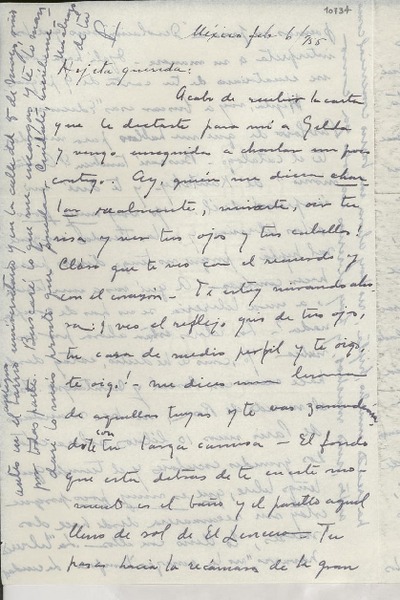 10734
México feb 6/35
Viejita querida:
Acabo de recibir la carta
que le dictaste para mí a Gilda
y vengo enseguida a charlar un poco
contigo. Ay, quién me diera char
lar realmente, mirarte, oír tu
risa y ver tus ojos y tus cabellos!
Claro que te veo con el recuerdo y
con el corazón - Te estoy mirando aho
ra: veo el reflejo gris de tus ojos,
tu cara de medio perfil y te oigo,
te oigo! - me dices una broma
de aquellas tuyas y te vas
dote con tu larga camisa - El fondo
que está detrás de ti en este mo-
mento es el baño y el pasillo aquel
lleno de sol de El Lencero - Tu
pasas hacia la recámara de la gran
antes en el barrio universitario y en la calle del 5 de Mayo,
por todas partes. Buscaré lo que me encargas y te lo man
daré lo más pronto que pueda.